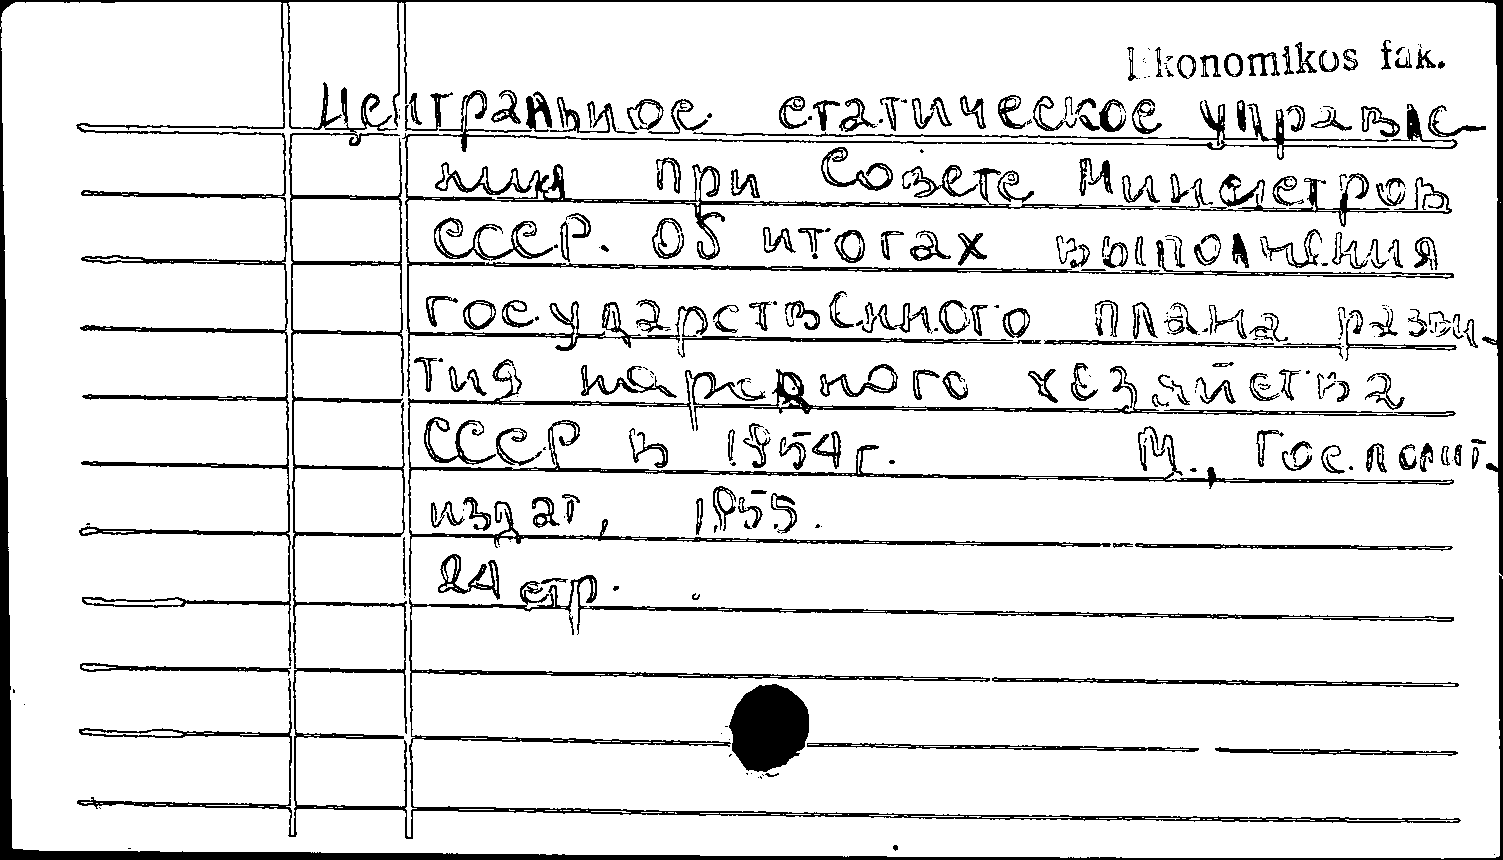 Ekonomikos fak.
Центральное статическое управле-
ния при Совете Министров
СССР. Об итогах выполнения
государственного плана разви-
тия народного хозяйства
СССР в 1954г. М., Госполит-
издат, 1955.
24 стр.